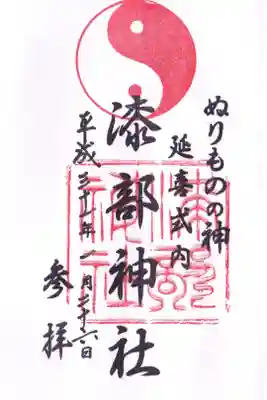 ぬりものの神
延喜式内
漆部神社
平成三十一年一月二十六日
参拝